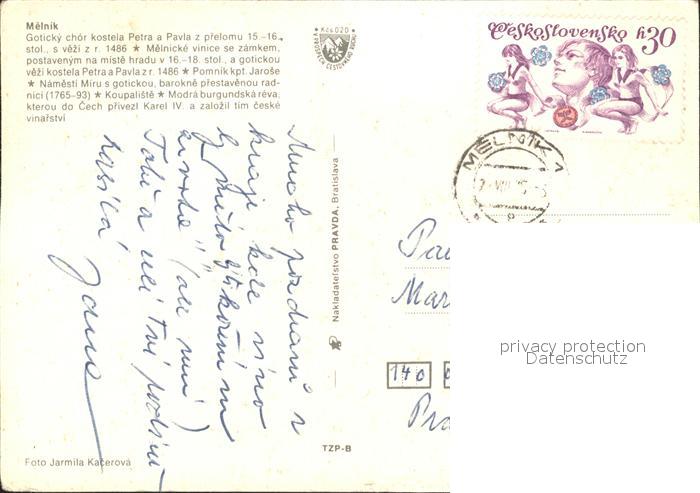 Mělník
Gotický chór kostela Petra a Pavla z přelomu 15.-16.
stol., s věží z r. 1486 ★ Mělnické vinice se zámkem,
postaveným na místě hradu v 16.-18. stol., a gotickou
věží kostela Petra a Pavla z r. 1486 ★ Pomník kpt. Jaroše
★ Náměstí Míru s gotickou, barokně přestavěnou rad-
nicí (1765-93) ★ Koupaliště ★ Modrá burgundská réva,
kterou do Čech přivezl Karel IV. a založil tím české
vinařství
Mnoho pozdravů z
kraje kde víno
(ale není)
Tatí a
posílá
Jana
Foto Jarmila Kačerová
Nakladateľstvo PRAVDA, Bratislava
TZP-B
Kčs 0,20
Československo h30
MĚLNÍK 1
Pa
Mar
140
Pra
privacy protection
Datenschutz